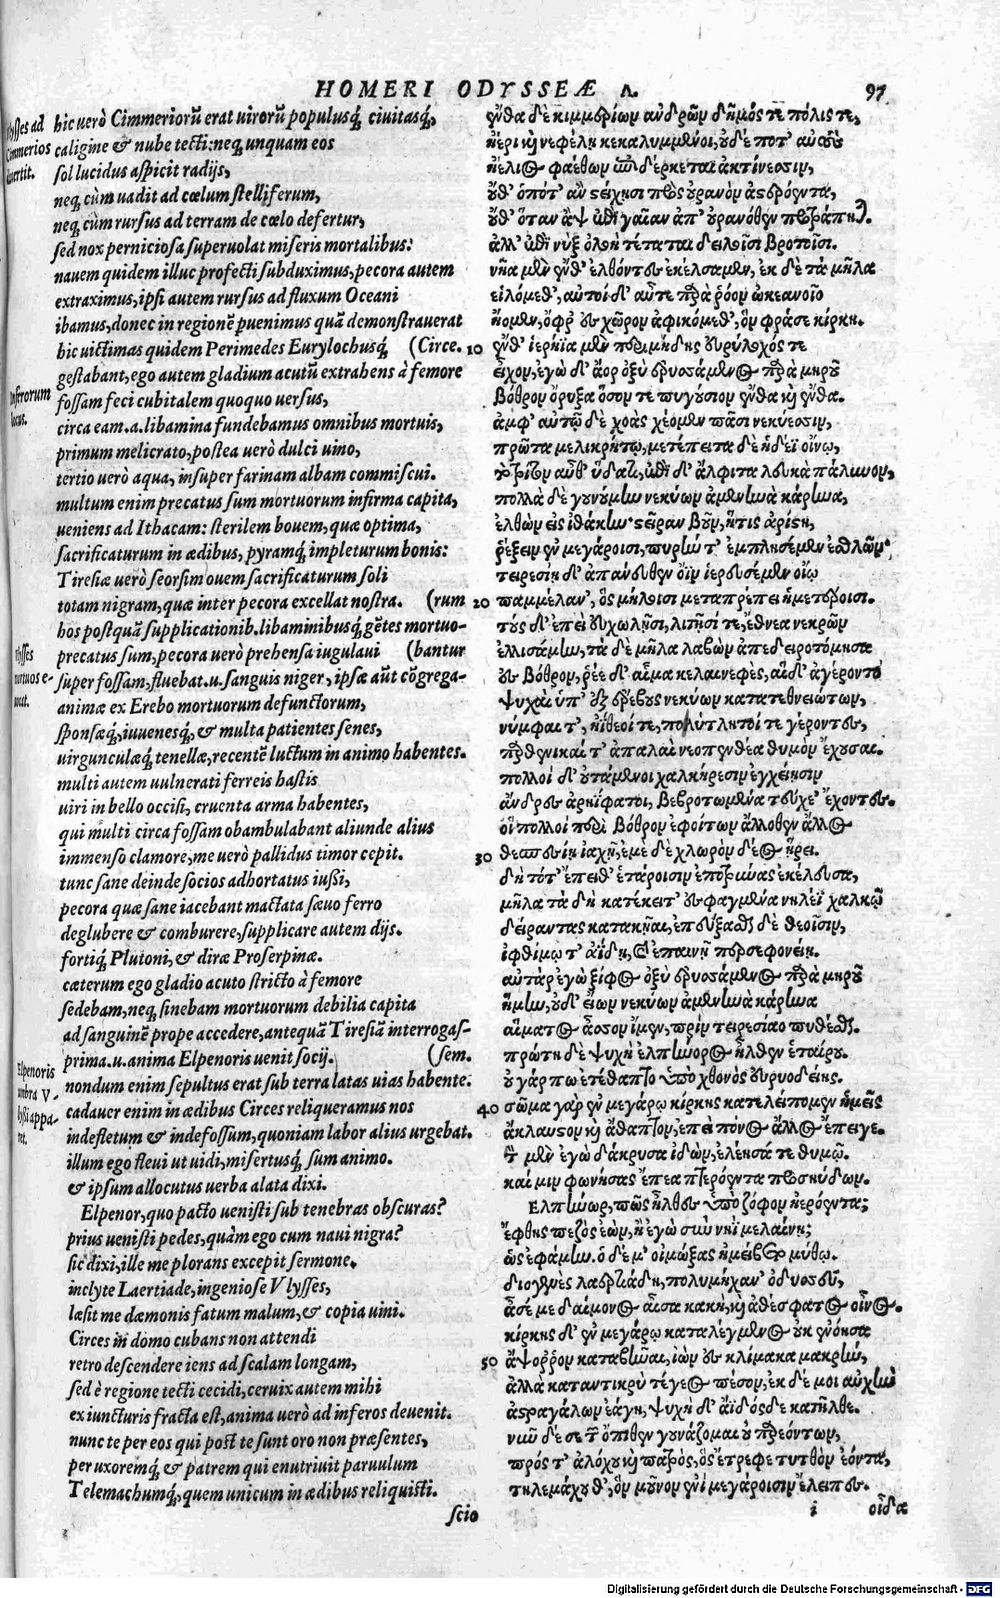 HOMERI ODYSSEÆ Λ. 97
hic uerò Cimmeriorũ erat uirorũ populusq́, ciuitasq́,
caligine & nube tecti: neq, unquam eos
sol lucidus aspicit radijs,
neq, cùm uadit ad cœlum stelliferum,
neq, cùm rursus ad terram de cœlo defertur,
sed nox perniciosa superuolat miseris mortalibus:
nauem quidem illuc profecti subduximus, pecora autem
extraximus, ipsi autem rursus ad fluxum Oceani
ibamus, donec in regionẽ puenimus quã demonstrauerat
hic uictimas quidem Perimedes Eurylochusq́, (Circe.
gestabant, ego autem gladium acutũ extrahens à femore
fossam feci cubitalem quoquo uersus,
circa eam .a. libamina fundebamus omnibus mortuis,
primum melicrato, postea uerò dulci uino,
tertio uerò aqua, insuper farinam albam commiscui.
multum enim precatus sum mortuorum infirma capita,
ueniens ad Ithacam: sterilem bouem, quæ optima,
sacrificaturum in ædibus, pyramq́, impleturum bonis:
Tiresiæ uerò seorsim ouem sacrificaturum soli
totam nigram, quæ inter pecora excellat nostra. (rum
hos postquã supplicationib. libaminibusq́, gẽtes mortuo-
precatus sum, pecora uerò prehensa iugulaui (bantur
super fossam, fluebat .u. sanguis niger, ipsæ aũt cõgrega-
animæ ex Erebo mortuorum defunctorum,
sponsæq́, iuuenesq́, & multa patientes senes,
uirgunculæq́, tenellæ, recentẽ luctum in animo habentes.
multi autem uulnerati ferreis hastis
uiri in bello occisi, cruenta arma habentes,
qui multi circa fossam obambulabant aliunde alius
immenso clamore, me uerò pallidus timor cepit.
tunc sane deinde socios adhortatus iussi,
pecora quæ sane iacebant mactata sæuo ferro
deglubere & comburere, supplicare autem dijs.
fortiq́, Plutoni, & diræ Proserpinæ.
cæterum ego gladio acuto stricto à femore
sedebam, neq, sinebam mortuorum debilia capita
ad sanguinẽ prope accedere, antequã Tiresiã interrogas-
prima .u. anima Elpenoris uenit socij. (sem.
nondum enim sepultus erat sub terra latas uias habente:
cadauer enim in ædibus Circes reliqueramus nos
indefletum & indefossum, quoniam labor alius urgebat.
illum ego fleui ut uidi, misertusq́, sum animo.
& ipsum allocutus uerba alata dixi.
Elpenor, quo pacto uenisti sub tenebras obscuras?
prius uenisti pedes, quàm ego cum naui nigra?
sic dixi, ille me plorans excepit sermone.
inclyte Laertiade, ingeniose Vlysses,
læsit me dæmonis fatum malum, & copia uini.
Circes in domo cubans non attendi
retro descendere iens ad scalam longam,
sed è regione tecti cecidi, ceruix autem mihi
ex iuncturis fracta est, anima uerò ad inferos deuenit.
nunc te per eos qui post te sunt oro non præsentes,
per uxoremq́, & patrem qui enutriuit paruulum
Telemachumq́, quem unicum in ædibus reliquisti.
scio
ἔνθα δὲ κιμμερίων ἀνδρῶν δῆμός τε πόλις τε,
ἠέρι κὶ νεφέλῃ κεκαλυμμένοι, οὐδέ ποτ' αὐτοὺς
ἠέλιος φαέθων ἐπιδέρκεται ἀκτίνεσσιν,
οὔθ' ὁπότ' ἂν στείχῃσι πρὸς οὐρανὸν ἀστερόεντα,
οὔθ' ὅταν ἂψ ἐπὶ γαῖαν ἀπ' οὐρανόθεν προτράπηται.
ἀλλ' ἐπὶ νὺξ ὀλοὴ τέταται δειλοῖσι βροτοῖσι.
νῆα μὲν ἔνθ' ἐλθόντες ἐκέλσαμεν, ἐκ δὲ τὰ μῆλα
εἱλόμεθ', αὐτοὶ δ' αὖτε παρὰ ῥόον ὠκεανοῖο
ἤομεν, ὄφρ' ἐς χῶρον ἀφικόμεθ', ὃν φράσε κίρκη.
10 ἔνθ' ἱερήϊα μὲν περιμήδης εὐρύλοχός τε
ἔχον, ἐγὼ δ' ἄορ ὀξὺ ἐρυσσάμενος παρὰ μηροῦ
βόθρον ὄρυξα ὅσον τε πυγούσιον ἔνθα κὶ ἔνθα.
ἀμφ' αὐτῷ δὲ χοὰς χέομεν πᾶσι νεκύεσσιν,
πρῶτα μελικρήτῳ, μετέπειτα δὲ ἡδέϊ οἴνῳ,
τὸ τρίτον αὖθ' ὕδατι, ἐπὶ δ' ἄλφιτα λευκὰ πάλυνον,
πολλὰ δὲ γουνούμην νεκύων ἀμενηνὰ κάρηνα,
ἐλθὼν εἰς ἰθάκην στεῖραν βοῦν, ἥτις ἀρίστη,
ῥέξειν ἐν μεγάροισι, πυρήν τ' ἐμπλησέμεν ἐσθλῶν·
τειρεσίῃ δ' ἀπάνευθεν ὄϊν ἱερευσέμεν οἴῳ
20 παμμέλαν', ὃς μήλοισι μεταπρέπει ἡμετέροισι.
τοὺς δ' ἐπεὶ εὐχωλῇσι, λιτῇσί τε, ἔθνεα νεκρῶν
ἐλλισάμην, τὰ δὲ μῆλα λαβὼν ἀπεδειροτόμησα
ἐς βόθρον, ῥέε δ' αἷμα κελαινεφὲς, αἱ δ' ἀγέροντο
ψυχαὶ ὑπ' ἐξ ἐρέβους νεκύων κατατεθνειώτων,
νύμφαι τ', ἠΐθεοί τε, πολύτλητοί τε γέροντες,
παρθενικαί τ' ἀπαλαὶ νεοπενθέα θυμὸν ἔχουσαι.
πολλοὶ δ' οὐτάμενοι χαλκήρεσιν ἐγχείῃσιν
ἄνδρες ἀρηΐφατοι, βεβροτωμένα τεύχε' ἔχοντες.
οἳ πολλοὶ περὶ βόθρον ἐφοίτων ἄλλοθεν ἄλλος
30 θεσπεσίῃ ἰαχῇ, ἐμὲ δὲ χλωρὸν δέος ᾕρει.
δὴ τότ' ἔπειθ' ἑτάροισιν ἐποτρύνας ἐκέλευσα,
μῆλα τὰ δὴ κατέκειτ' ἐσφαγμένα νηλέϊ χαλκῷ
δείραντας κατακῆαι, ἐπεύξασθαι δὲ θεοῖσιν,
ἰφθίμῳ τ' ἀΐδῃ, καὶ ἐπαινῇ περσεφονείῃ.
αὐτὰρ ἐγὼ ξίφος ὀξὺ ἐρυσσάμενος παρὰ μηροῦ
ἥμην, οὐδ' εἴων νεκύων ἀμενηνὰ κάρηνα
αἵματος ἆσσον ἴμεν, πρὶν τειρεσίαο πυθέσθαι.
πρώτη δὲ ψυχὴ ἐλπήνορος ἦλθεν ἑταίρου.
οὐ γάρ πω ἐτέθαπτο ὑπὸ χθονὸς εὐρυοδείης.
40 σῶμα γὰρ ἐν μεγάρῳ κίρκης κατελείπομεν ἡμεῖς
ἄκλαυστον κὶ ἄθαπτον, ἐπεὶ πόνος ἄλλος ἔπειγε.
τὸν μὲν ἐγὼ δάκρυσα ἰδὼν, ἐλέησά τε θυμῷ.
καί μιν φωνήσας ἔπεα πτερόεντα προσηύδων.
Ἐλπῆνωρ, πῶς ἦλθες ὑπὸ ζόφον ἠερόεντα;
ἔφθης πεζὸς ἐὼν, ἢ ἐγὼ σὺν νηῒ μελαίνῃ;
ὣς ἐφάμην, ὁ δέ μ' οἰμώξας ἠμείβετο μύθῳ.
διογενὲς λαερτιάδη, πολυμήχαν' ὀδυσσεῦ,
ἆσέ με δαίμονος αἶσα κακὴ, κὶ ἀθέσφατος οἶνος.
κίρκης δ' ἐν μεγάρῳ καταλέγμενος οὐκ ἐνόησα
50 ἄψορρον καταβῆναι, ἰὼν ἐς κλίμακα μακρήν,
ἀλλὰ καταντικρὺ τέγεος πέσον, ἐκ δέ μοι αὐχὴν
ἀστραγάλων ἐάγη, ψυχὴ δ' ἄϊδός δε κατῆλθε.
νῦν δέ σε τῶν ὄπιθεν γουνάζομαι οὐ παρεόντων,
πρός τ' ἀλόχου κὶ πατρὸς, ὅς ἔτρεφε τυτθὸν ἐόντα,
τηλεμάχου θ', ὃν μοῦνον ἐνὶ μεγάροισιν ἔλειπες.
i οἶδα
Digitalisierung gefördert durch die Deutsche Forschungsgemeinschaft - DFG